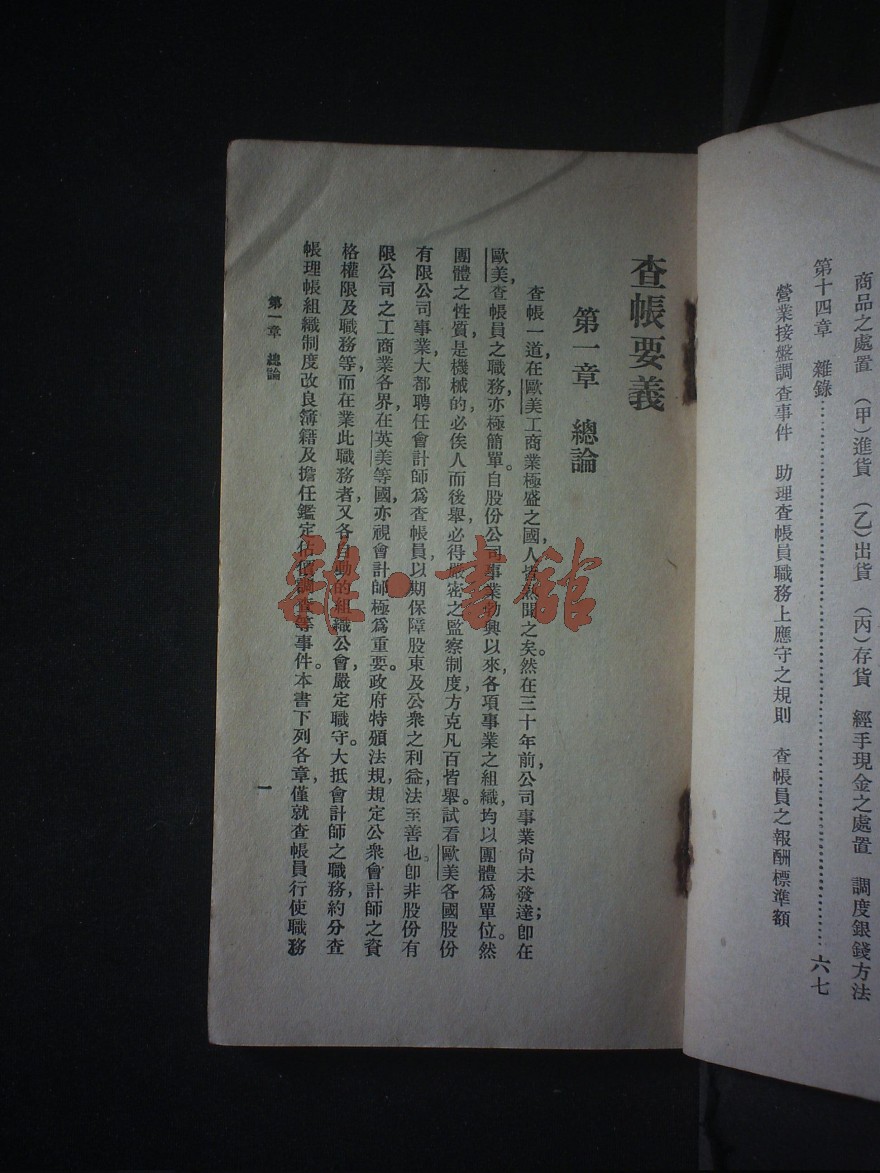 商品之處置　(甲)進貨　(乙)出貨　(丙)存貨　經手現金之處置　調度銀錢方法
第十四章　雜錄……………………………………六七
營業接盤調查事件　助理查帳員職務上應守之規則　查帳員之報酬標準額
查帳要義
第一章　總論
查帳一道，在歐美工商業極盛之國，人皆熟聞之矣。然在三十年前，公司事業尚未發達；卽在
歐美，查帳員之職務亦極簡單。自股份公司事業勃興以來，各項事業之組織，均以團體爲單位。然
團體之性質是機械的，必俟人而後舉，必得嚴密之監察制度，方克凡百皆舉。試看歐美各國股份
有限公司事業，大都聘任會計師爲查帳員，以期保障股東及公衆之利益，法至善也。卽非股份有
限公司之工商業各界，在英美等國，亦視會計師極爲重要。政府特頒法規，規定公衆會計師之資
格權限及職務等，而在業此職務者，又各自動的組織公會，嚴定職守。大抵會計師之職務，約分查
帳理帳組織制度改良簿籍及擔任鑑定估價調查等事件。本書下列各章，僅就查帳員行使職務
第一章　總論
一
雜·書館